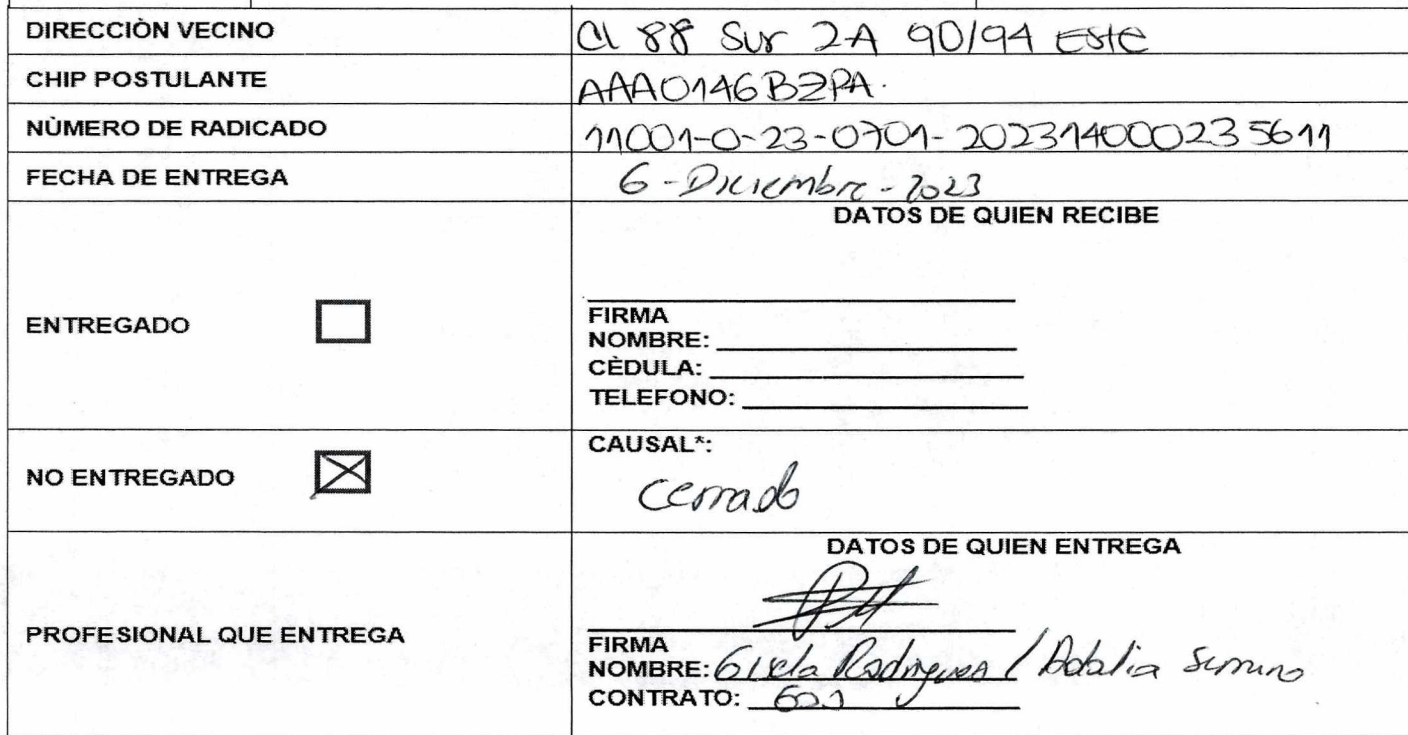 DIRECCIÒN VECINO
Cl 88 Sur 2A 90/94 Este
CHIP POSTULANTE
AAA0146BZPA.
NÙMERO DE RADICADO
11001-0-23-0701-202314000235611
FECHA DE ENTREGA
6-Diciembre-2023
DATOS DE QUIEN RECIBE
ENTREGADO
FIRMA
NOMBRE:
CÈDULA:
TELEFONO:
NO ENTREGADO
CAUSAL*:
Cerrado
DATOS DE QUIEN ENTREGA
PROFESIONAL QUE ENTREGA
FIRMA
NOMBRE: Gisela Rodriguez /
CONTRATO: